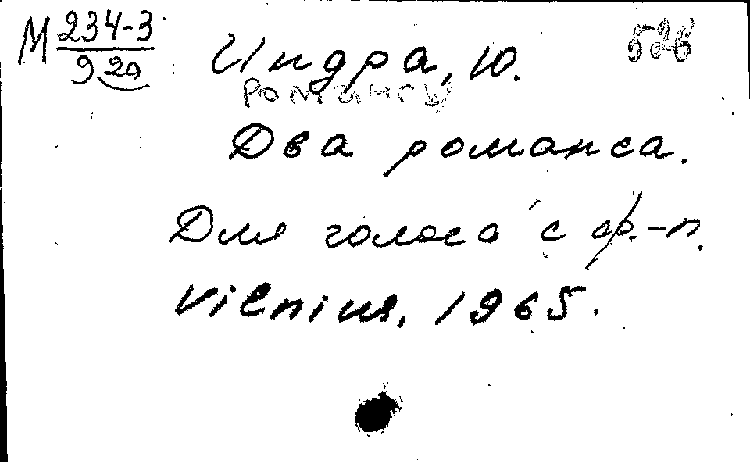 М 234-3 Индра, Ю. 526
920
романсы
Два романса.
Для голоса с ф.-п.
Vilnius, 1965.